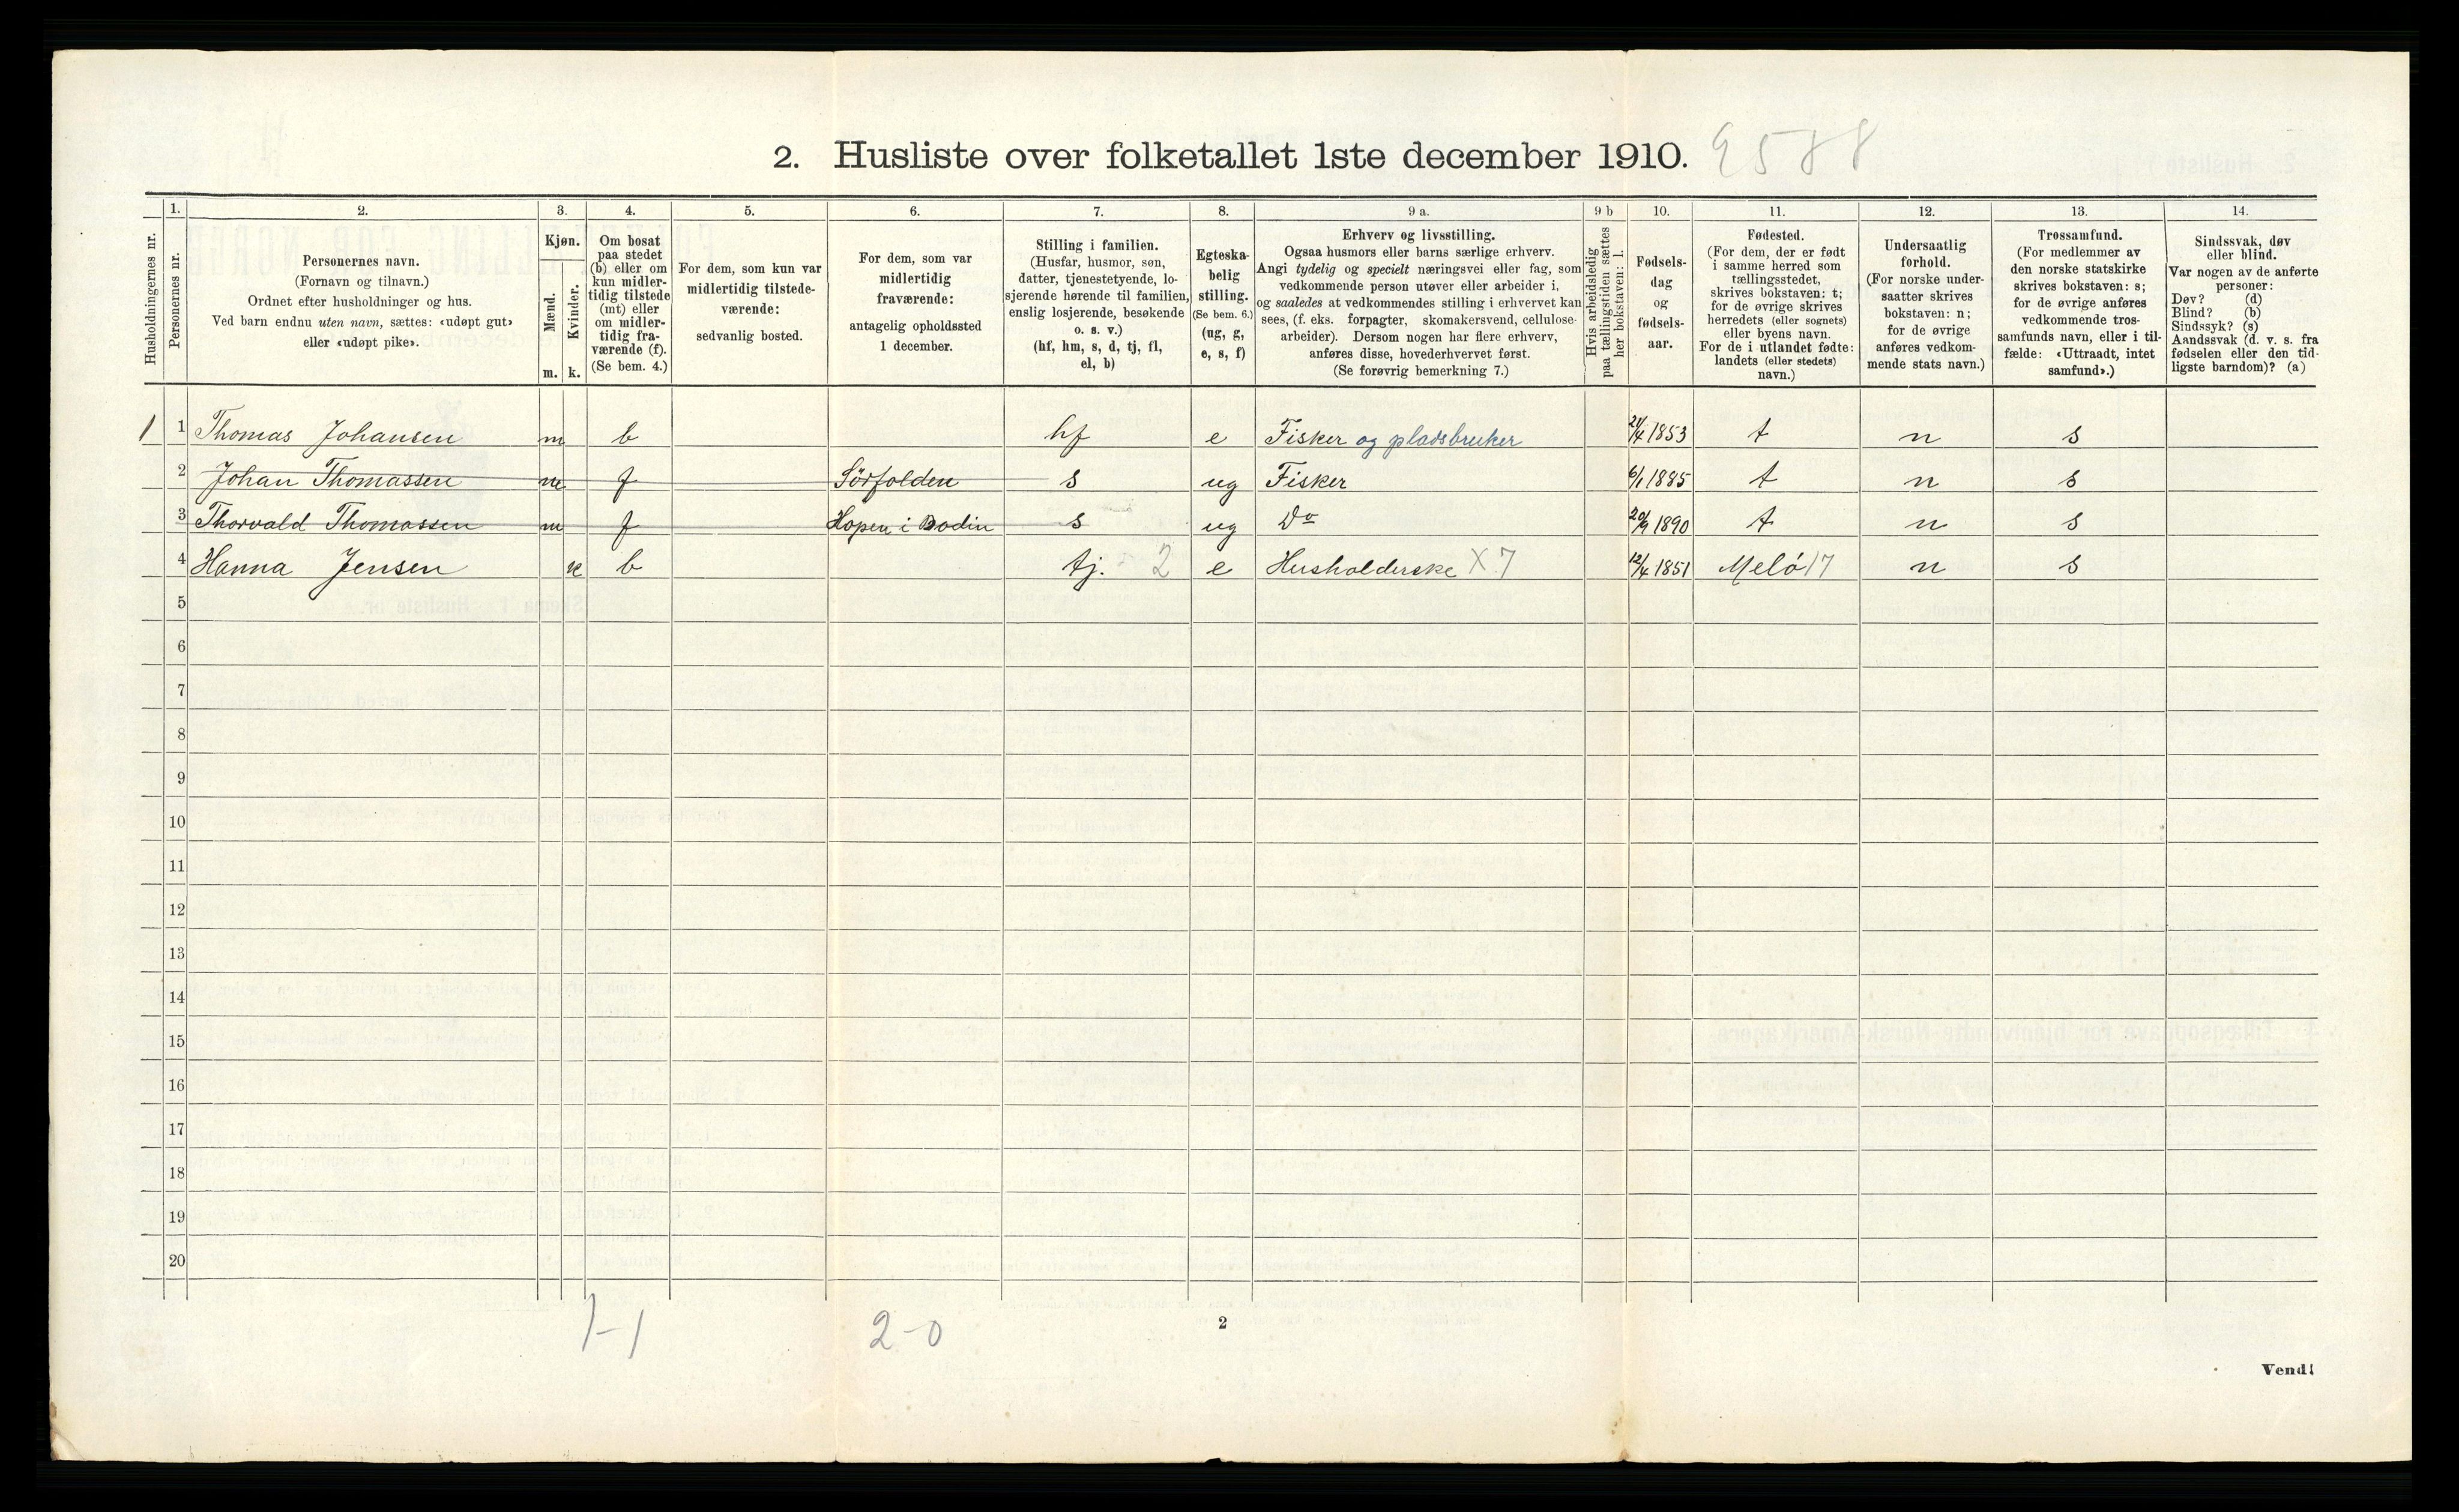 2. Husliste over folketallet 1ste december 1910. 9588
Husholdningernes nr.
1.
Personernes nr.
2.
Personernes navn.
(Fornavn og tilnavn.)
Ordnet efter husholdninger og hus.
Ved barn endnu uten navn, sættes: «udøpt gut»
eller «udøpt pike».
3.
Kjøn.
Mænd.
Kvinder.
m. k.
4.
Om bosat
paa stedet
(b) eller om
kun midler-
tidig tilstede
(mt) eller
om midler-
tidig fra-
værende (f).
(Se bem. 4.)
5.
For dem, som kun var
midlertidig tilstede-
værende:
sedvanlig bosted.
6.
For dem, som var
midlertidig
fraværende:
antagelig opholdssted
1 december.
7.
Stilling i familien.
(Husfar, husmor, søn,
datter, tjenestetyende, lo-
sjerende hørende til familien,
enslig losjerende, besøkende
o. s. v.)
(hf, hm, s, d, tj, fl,
el, b)
8.
Egteska-
belig
stilling.
(Se bem. 6.)
(ug, g,
e, s, f)
9 a.
Erhverv og livsstilling.
Ogsaa husmors eller barns særlige erhverv.
Angi tydelig og specielt næringsvei eller fag, som
vedkommende person utøver eller arbeider i,
og saaledes at vedkommendes stilling i erhvervet kan
sees, (f. eks. forpagter, skomakersvend, cellulose-
arbeider). Dersom nogen har flere erhverv,
anføres disse, hovederhvervet først.
(Se forøvrig bemerkning 7.)
9 b
Hvis arbeidsledig
paa tællingstiden sættes
her bokstaven: l.
10.
Fødsels-
dag
og
fødsels-
aar.
11.
Fødested.
(For dem, der er født
i samme herred som
tællingsstedet,
skrives bokstaven: t;
for de øvrige skrives
herredets (eller sognets)
eller byens navn.
For de i utlandet fødte:
landets (eller stedets)
navn.)
12.
Undersaatlig
forhold.
(For norske under-
saatter skrives
bokstaven: n;
for de øvrige
anføres vedkom-
mende stats navn.)
13.
Trossamfund.
(For medlemmer av
den norske statskirke
skrives bokstaven: s;
for de øvrige anføres
vedkommende tros-
samfunds navn, eller i til-
fælde: «Uttraadt, intet
samfund».)
14.
Sindssvak, døv
eller blind.
Var nogen av de anførte
personer:
Døv? (d)
Blind? (b)
Sindssyk? (s)
Aandssvak (d. v. s. fra
fødselen eller den tid-
ligste barndom)? (a)
1 1 Thomas Johansen m b hf e Fisker og pladsbruker 21/4 1853 t n s
2 Johan Thomassen m f Sörfolden s ug Fisker 6/1 1885 t n s
3 Thorvald Thomassen m f Hopen i Bodin s ug Do 20/9 1890 t n s
4 Hanna Jensen k b tj. 2 e Husholderske X 7 12/4 1851 Melö 17 n s
5
6
7
8
9
10
11
12
13
14
15
16
17
18
19
20
1-1 2-0
2
Vend!